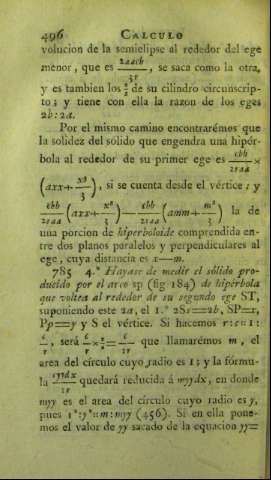 496 CALCULO
volucion de la semielipse al rededor del ege
menor, que es 2aacb/3r, se saca como la otra,
y es tambien los 2/3 de su cilindro circunscrip-
to; y tiene con ella la razon de los eges
2b: 2a.
Por el mismo camino encontrarémos que
la solidez del sólido que engendra una hipér-
bola al rededor de su primer ege es cbb/2raa ×
(axx+x³/3), si se cuenta desde el vértice; y
cbb/2raa (axx+x³/3)—cbb/2raa (amm+m³/3) la de
una porcion de hiperboloide comprendida en-
tre dos planos paralelos y perpendiculares al
ege, cuya distancia es x—m.
785 4.° Hayase de medir el sólido pro-
ducido por el arco sp (fig 184) de hipérbola
que voltea al rededor de su segundo ege ST,
suponiendo este 2a, el 1.° 2Ss=2b, SP=x,
Pp=y y S el vértice. Si hacemos r:c=1:
c/r, será c/r×1/2=c/2r que llamarémos m, el
area del círculo cuyo radio es 1; y la fórmu-
la cyydx/2r quedará reducida á myydx, en donde
myy es el area del círculo cuyo radio es y,
pues 1²:y²=m:myy (456). Si en ella pone-
mos el valor de yy sacado de la equacion yy=